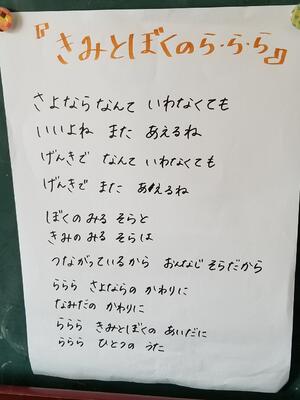 『きみとぼくのら・ら・ら』
さよならなんて いわなくても
いいよね また あえるね
げんきで なんて いわなくても
げんきで また あえるね
ぼくの みる そらと
きみの みる そらは
つながっているから おんなじ そらだから
ららら さよならの かわりに
なみだの かわりに
ららら きみとぼくの あいだに
ららら ひとつの うた